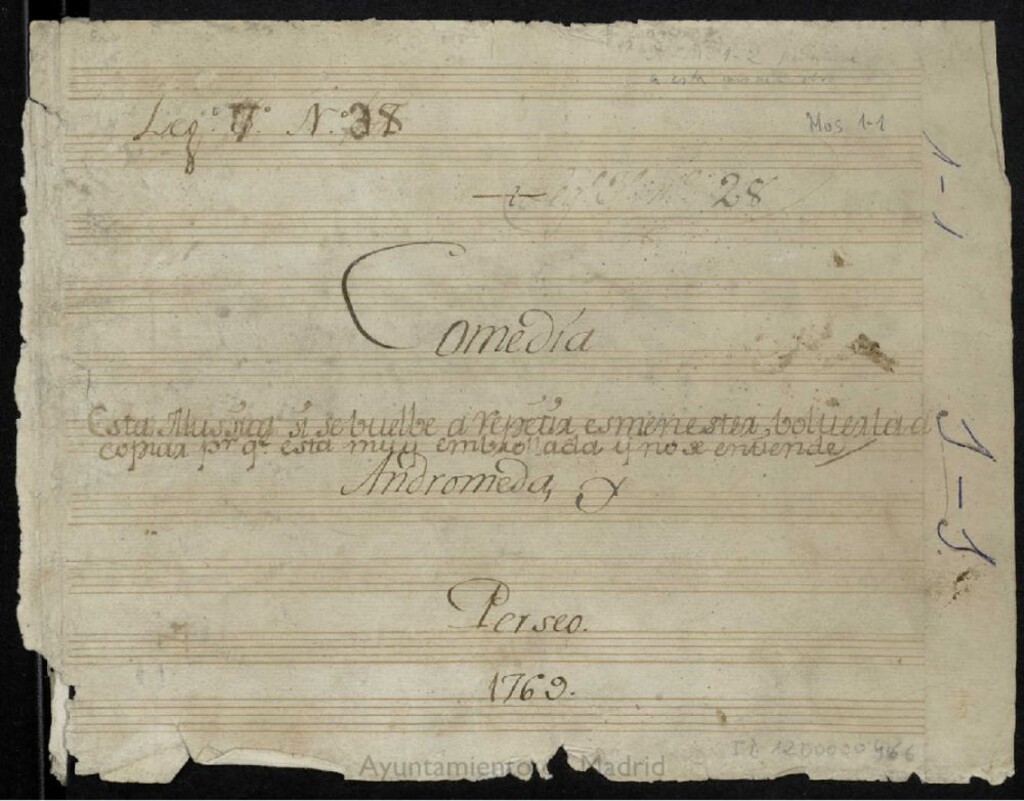 1-2
a esta
Leg.º 7.º N.º 38
Mus 1-1
1-1
28
Comedia
Esta Mussica si se buelbe a repetir es menester, bolverla a
copiar pr. qe. esta muy embrollada y no se entiende
Andromeda, y
1-1.
Perseo.
1769.
Ayuntamiento de Madrid